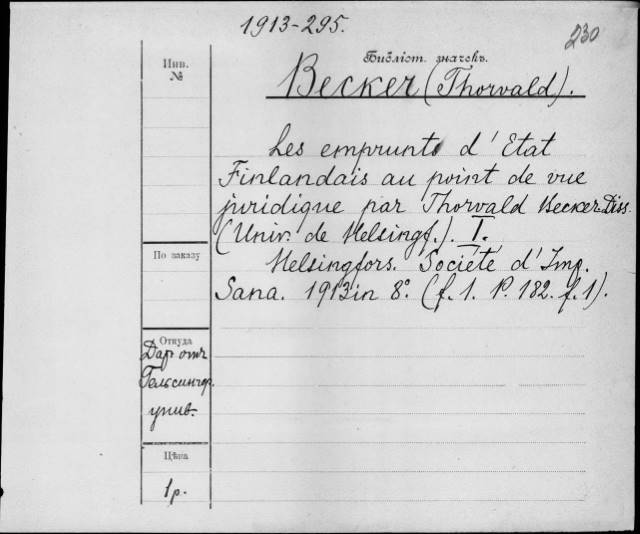 1913-295.
230
Инв.
№
Библіот. значекъ.
Becker (Thorvald).
Les emprunts d'Etat
Finlandais au point de vue
juridique par Thorvald Becker. Diss.
(Univ. de Helsingf.). I.
По заказу
Helsingfors. Société d'Imp.
Sana. 1913 in 8º. (f. 1. P. 182. f. 1).
Откуда
Даръ отъ
Гельсингфор.
унив.
Цѣна
1 р.